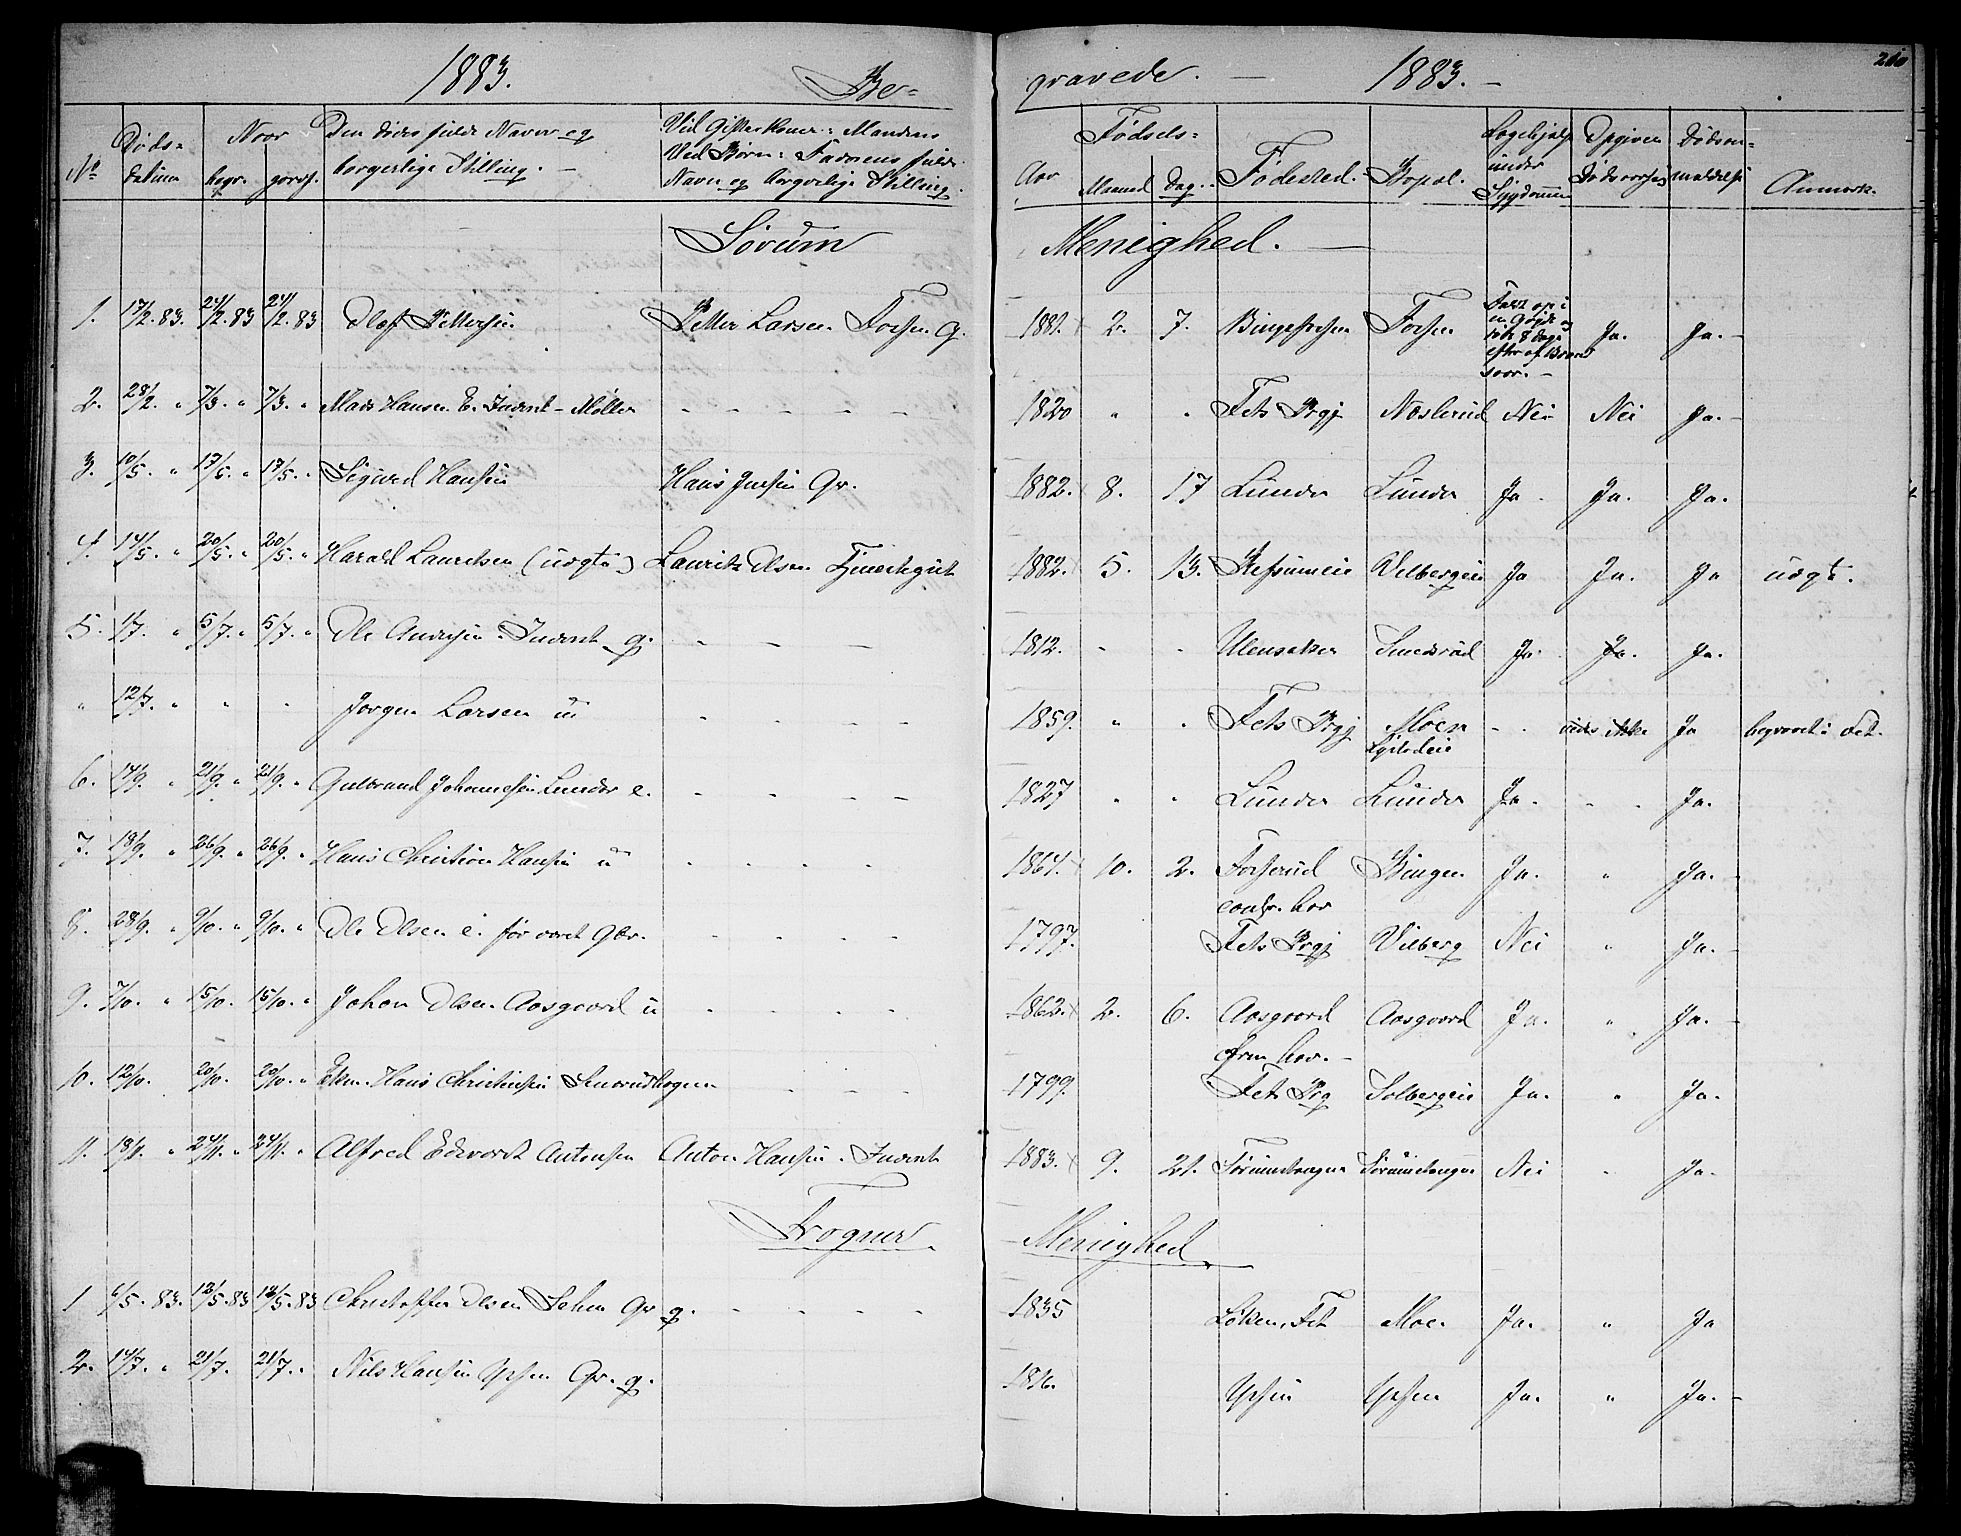 1883. Be- gravede. — 1883. — 260
No Døds-datum Naar begr. Naar jordf. Den dødes fulde Navn og borgerlige Stilling. Ved Gifte Koner: Mandens Ved Børn: Faderens fulde Navn og borgerlige Stilling. Fødsels- Aar Maaned Dag Fødested. Bopæl. Lægehjælp under Sygdommen Opgiven Dødsaarsag Dødsan-meldelse Anmærk.
Sørum Menighed. —
1. 17/2. 83. 24/2. 83 24/2. 83 Olaf Pettersen Petter Larsen Fossen G. 1881. 2. 7. Bingefossen Fossen Ja. Ja. -
2. 28/2. " 7/3. " 7/3. " Mads Hansen E. Inderst - Møller - - - - 1820 " " Fets Prgj Næslerud Nei Nei Ja. -
3. 10/5. " 17/5. " 17/5. " Sigvard Hansen Hans Jensen Gr. 1882. 8. 17 Lunder Lunder Ja. Ja. Ja.
4. 14/5. " 20/5. " 20/5. " Harald Lauritsen (uægte) Lauritz Olsen Tjenestegut 1882. 5. 13. Refsumeie Vilbergeie Ja Ja. Ja uægte.
5. 1/7. " 5/7. " 5/7. " Ole Andersen Inderst g. - - - 1812. - - Ullensaker Smedsrud Ja. Ja. Ja.
" 12/7. " " " Jørgen Larsen u - - - - 1859. " " Fets Prgj Moen - - vides ikke Ja begravet i Fet.
6. 14/9. " 21/9. " 21/9. " Gulbrand Johannesen Lunder e. - - - - 1827 " " Lunder Lunder Ja. - - Ja.
7. 18/9. " 26/9. " 26/9. " Hans Christian Hansen u - - - - 1864. 10. 2. Fosserud Bingen Ja. " Ja. -
conf. her
8. 28/9. " 9/10. " 9/10. " Ole Olsen e. før været Gbr. - - - - 1797. Fets Prgj Vilberg Nei " Ja. -
9. 7/10. " 15/10. 15/10. " Johan Olsen Aasgaard u - - - - 1862. 2. 6. Aasgaard Aasgaard Ja. " Ja. -
10. 12/10. 20/10. 20/10. " Ekm. Hans Christensen - - - 1799. Fets Prg Solbergeie Ja. " Ja.
11. 18/11. " 24/11. " 24/11. " Alfred Edvard Antonsen Anton Hansen Inderst 1883. 9. 21. Sørumshagen Sørumshagen Nei - Ja.
Frogner Menighed
1 6/5. 83. 12/5. 83 12/5. 83 Christoffer Olsen Gr. g. - - - - 1835 Løken, Fet Moe. Ja. " Ja
2. 14/7. " 21/7. 21/7. " Nils Hansen Gr. g. 1816. Ja. " Ja. -